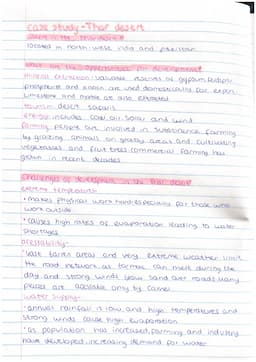 case study - Thar desert
where is the thar desert?
located in north-west india and pakistan
what are the opportunities for development?
mineral extraction: valuable reserves of gypsum, feldspar,
phosphorite and kaolin are used domestically and for export.
limestone and marble are also extracted
tourism: desert safaris
energy: includes coal, oil, solar and wind
farming: people are involved in subsistence farming
by grazing animals on grassy areas and cultivating
vegetables and fruit trees. commercial farming has
grown in recent decades
challenges of development in the thar desert
extreme temperatures-
• makes physical work hard especially for those who
work outside
• causes high rates of evaporation leading to water
shortages
accessability-
• vast barren areas and very extreme weather limit
the road network as tarmac can melt during the
day and strong winds blow sand over roads. Many
places are accesible only by camel
water supply-
• annual rainfall is low and high temperatures and
strong winds cause high evaporation
• as population has increased, farming and industry
have developed, increasing demand for water